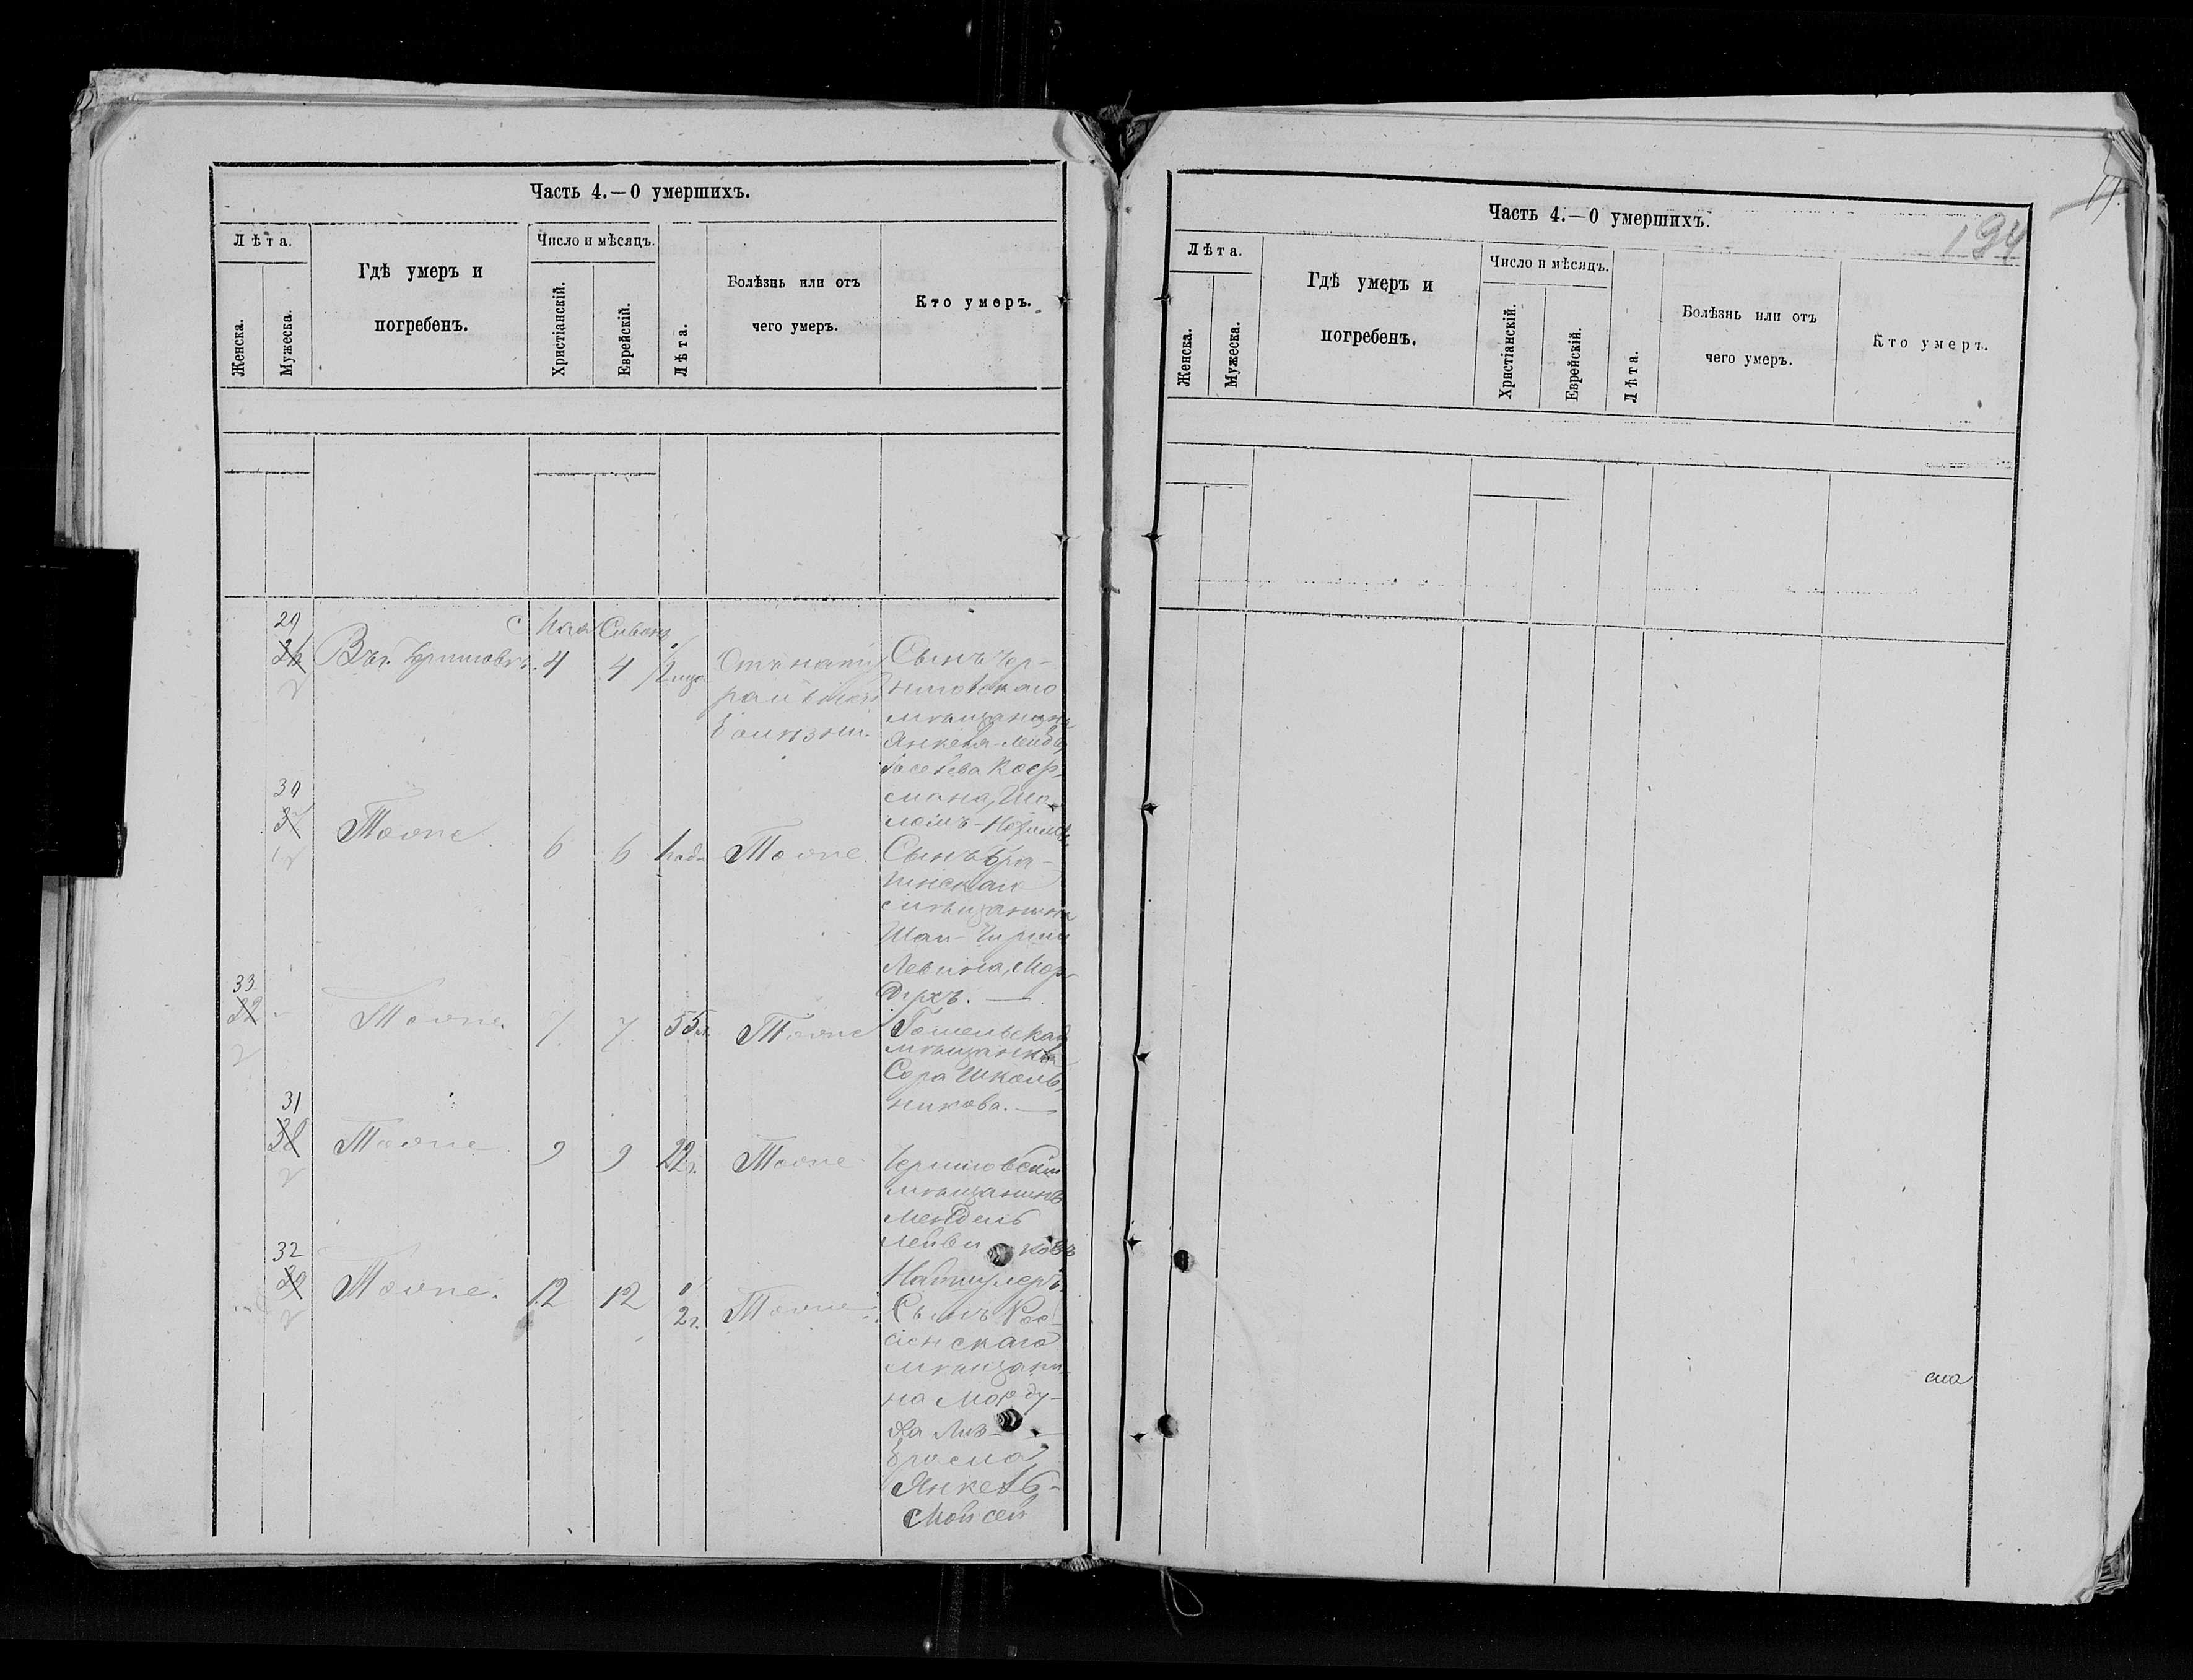 Часть 4.—О умершихъ.
Лѣта.
Женска.
Мужеска.
Гдѣ умеръ и
погребенъ.
Число и мѣсяцъ.
Христіанскій.
Еврейскій.
Лѣта.
Болѣзнь или отъ
чего умеръ.
Кто умеръ.
29
36
Въ г. Черниговѣ.
Мая
Сивонъ
4
4
Отъ нату
ральной
болѣзни.
Сынъ Чер-
ниговскаго
мѣщанина
Янкеля-Лейбы
мана, Шо-
ломъ-
30
37
Тоже
6
6
1 года
Тоже.
Сынъ
мѣщанина
Левина, Мор-
духъ.
33
32
Тоже.
7
7
55 л.
Тоже
Гомельская
мѣщанка
Сора Школь-
никова.
31
38
Тоже
9
9
22 г.
Тоже
Черниговскій
мѣщанинъ
Мендель
Лейви ковъ
32
39
Тоже.
12
12
2 г.
Тоже
Сынъ Рос-
сіенскаго
мѣщани-
на Морду-
ха
Янкель-
Мовсей
Часть 4.—О умершихъ.
194
Лѣта.
Женска.
Мужеска.
Гдѣ умеръ и
погребенъ.
Число и мѣсяцъ.
Христіанскій.
Еврейскій.
Лѣта.
Болѣзнь или отъ
чего умеръ.
Кто умеръ.